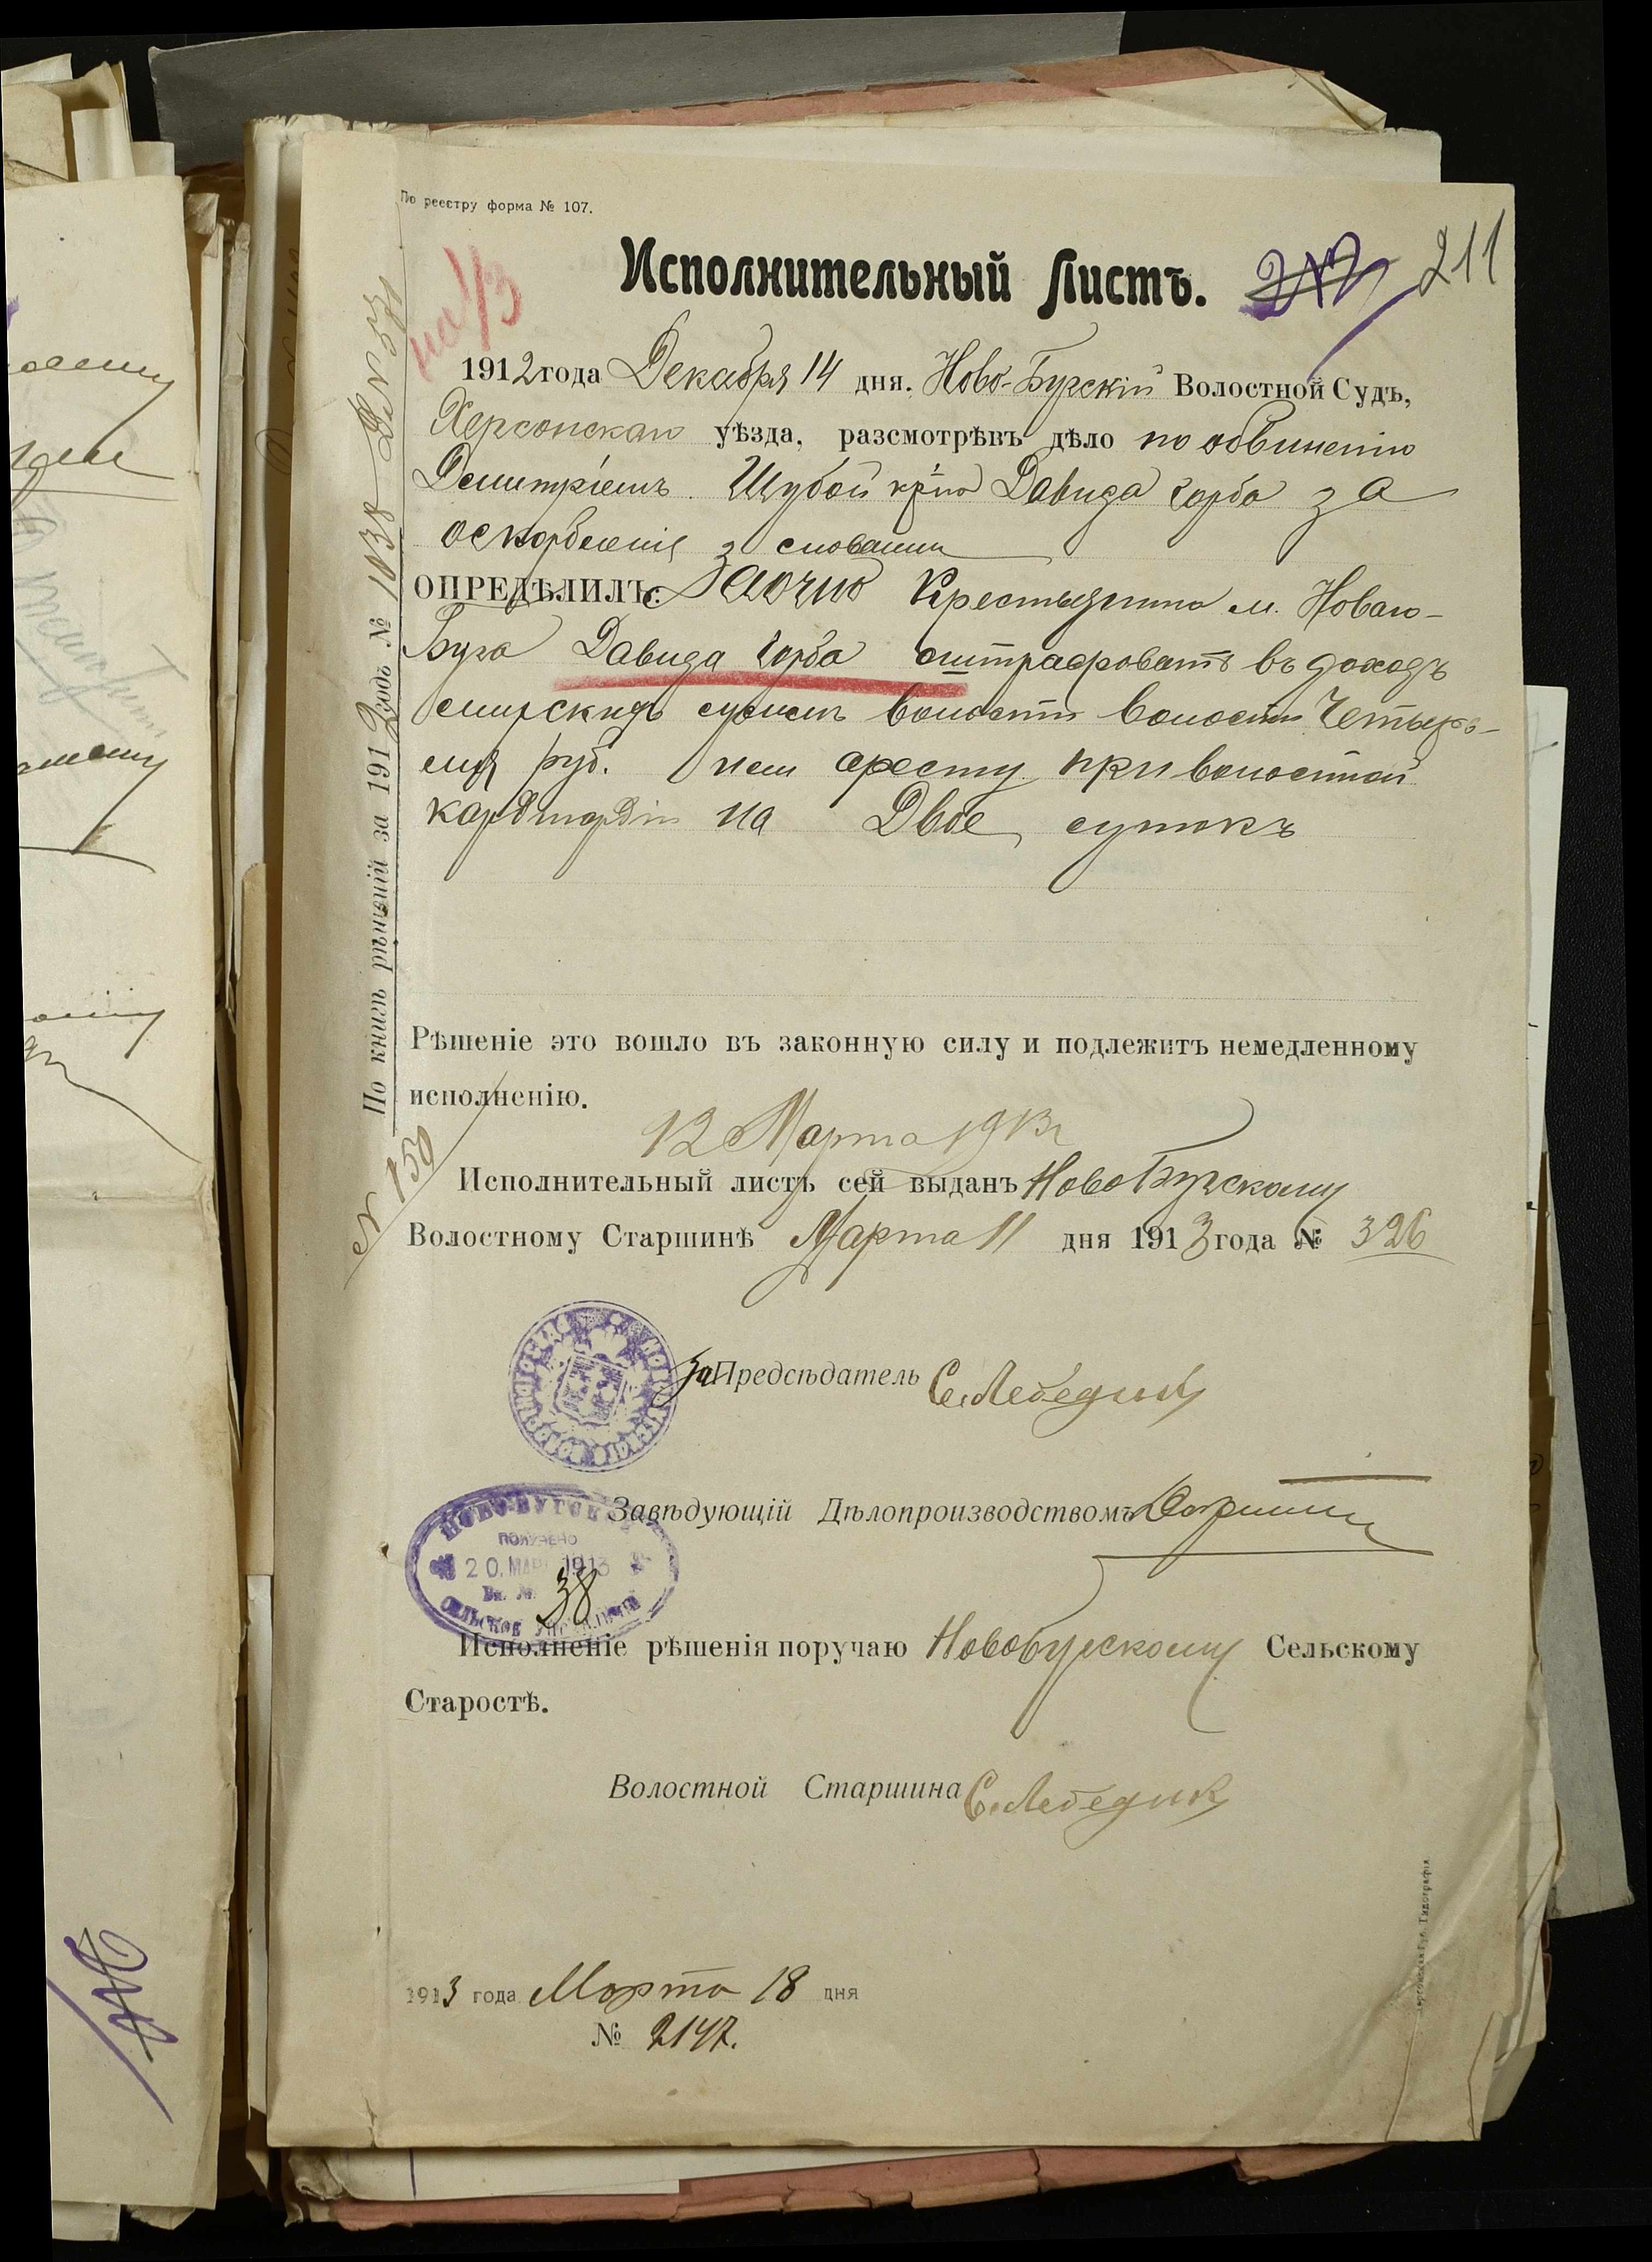 По реестру форма № 107.
Исполнительный Листъ.
211
на 1/3
1912 года Декабря 14 дня. Ново-Бугскій Волостной Судъ,
Херсонскаго уѣзда, разсмотрѣвъ дѣло по обвиненію
Демитріемъ Шубой кр-на Давида Горба за
оскорбленія словами
ОПРЕДѢЛИЛЪ: Заочно Крестьянина м. Новаго-
Буга Давида Горба оштрафовать въ доходъ
мирскихъ суммъ волости волости Четырь-
мя руб. или аресту при волостной
на Двое сутокъ
По книгѣ рѣшеній за 1912 годъ № 1038
Рѣшеніе это вошло въ законную силу и подлежитъ немедленному
исполненію.
12 Марта 1913 г
№ 150
Исполнительный листъ сей выданъ Ново Бугскому
Волостному Старшинѣ Марта 11 дня 1913 года № 326
за Предсѣдатель С. Лебедик
Завѣдующій Дѣлопроизводствомъ
НОВО-БУГСКОЕ
ПОЛУЧЕНО
20. МАР 1913
Вх. № 38
СЕЛЬСКОЕ УПРАВЛЕНІЕ
Исполненіе рѣшенія поручаю Новобугскому Сельскому
Старостѣ.
Волостной Старшина С. Лебедик
1913 года Марта 18 дня
№ 2147.